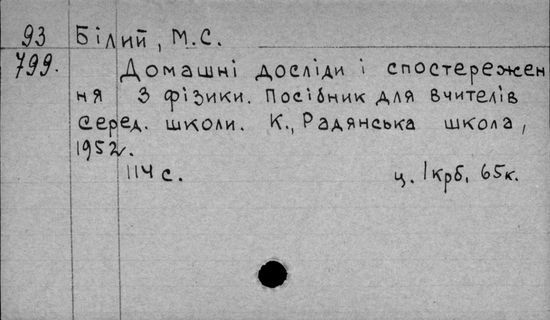 93 Білий, М.С.
799. Домашні досліди і спостережен
ня з фізики. Посібник для вчителів
серед. школи. К., Радянська школа,
1952.
114 с. ц. 1 крб. 65к.